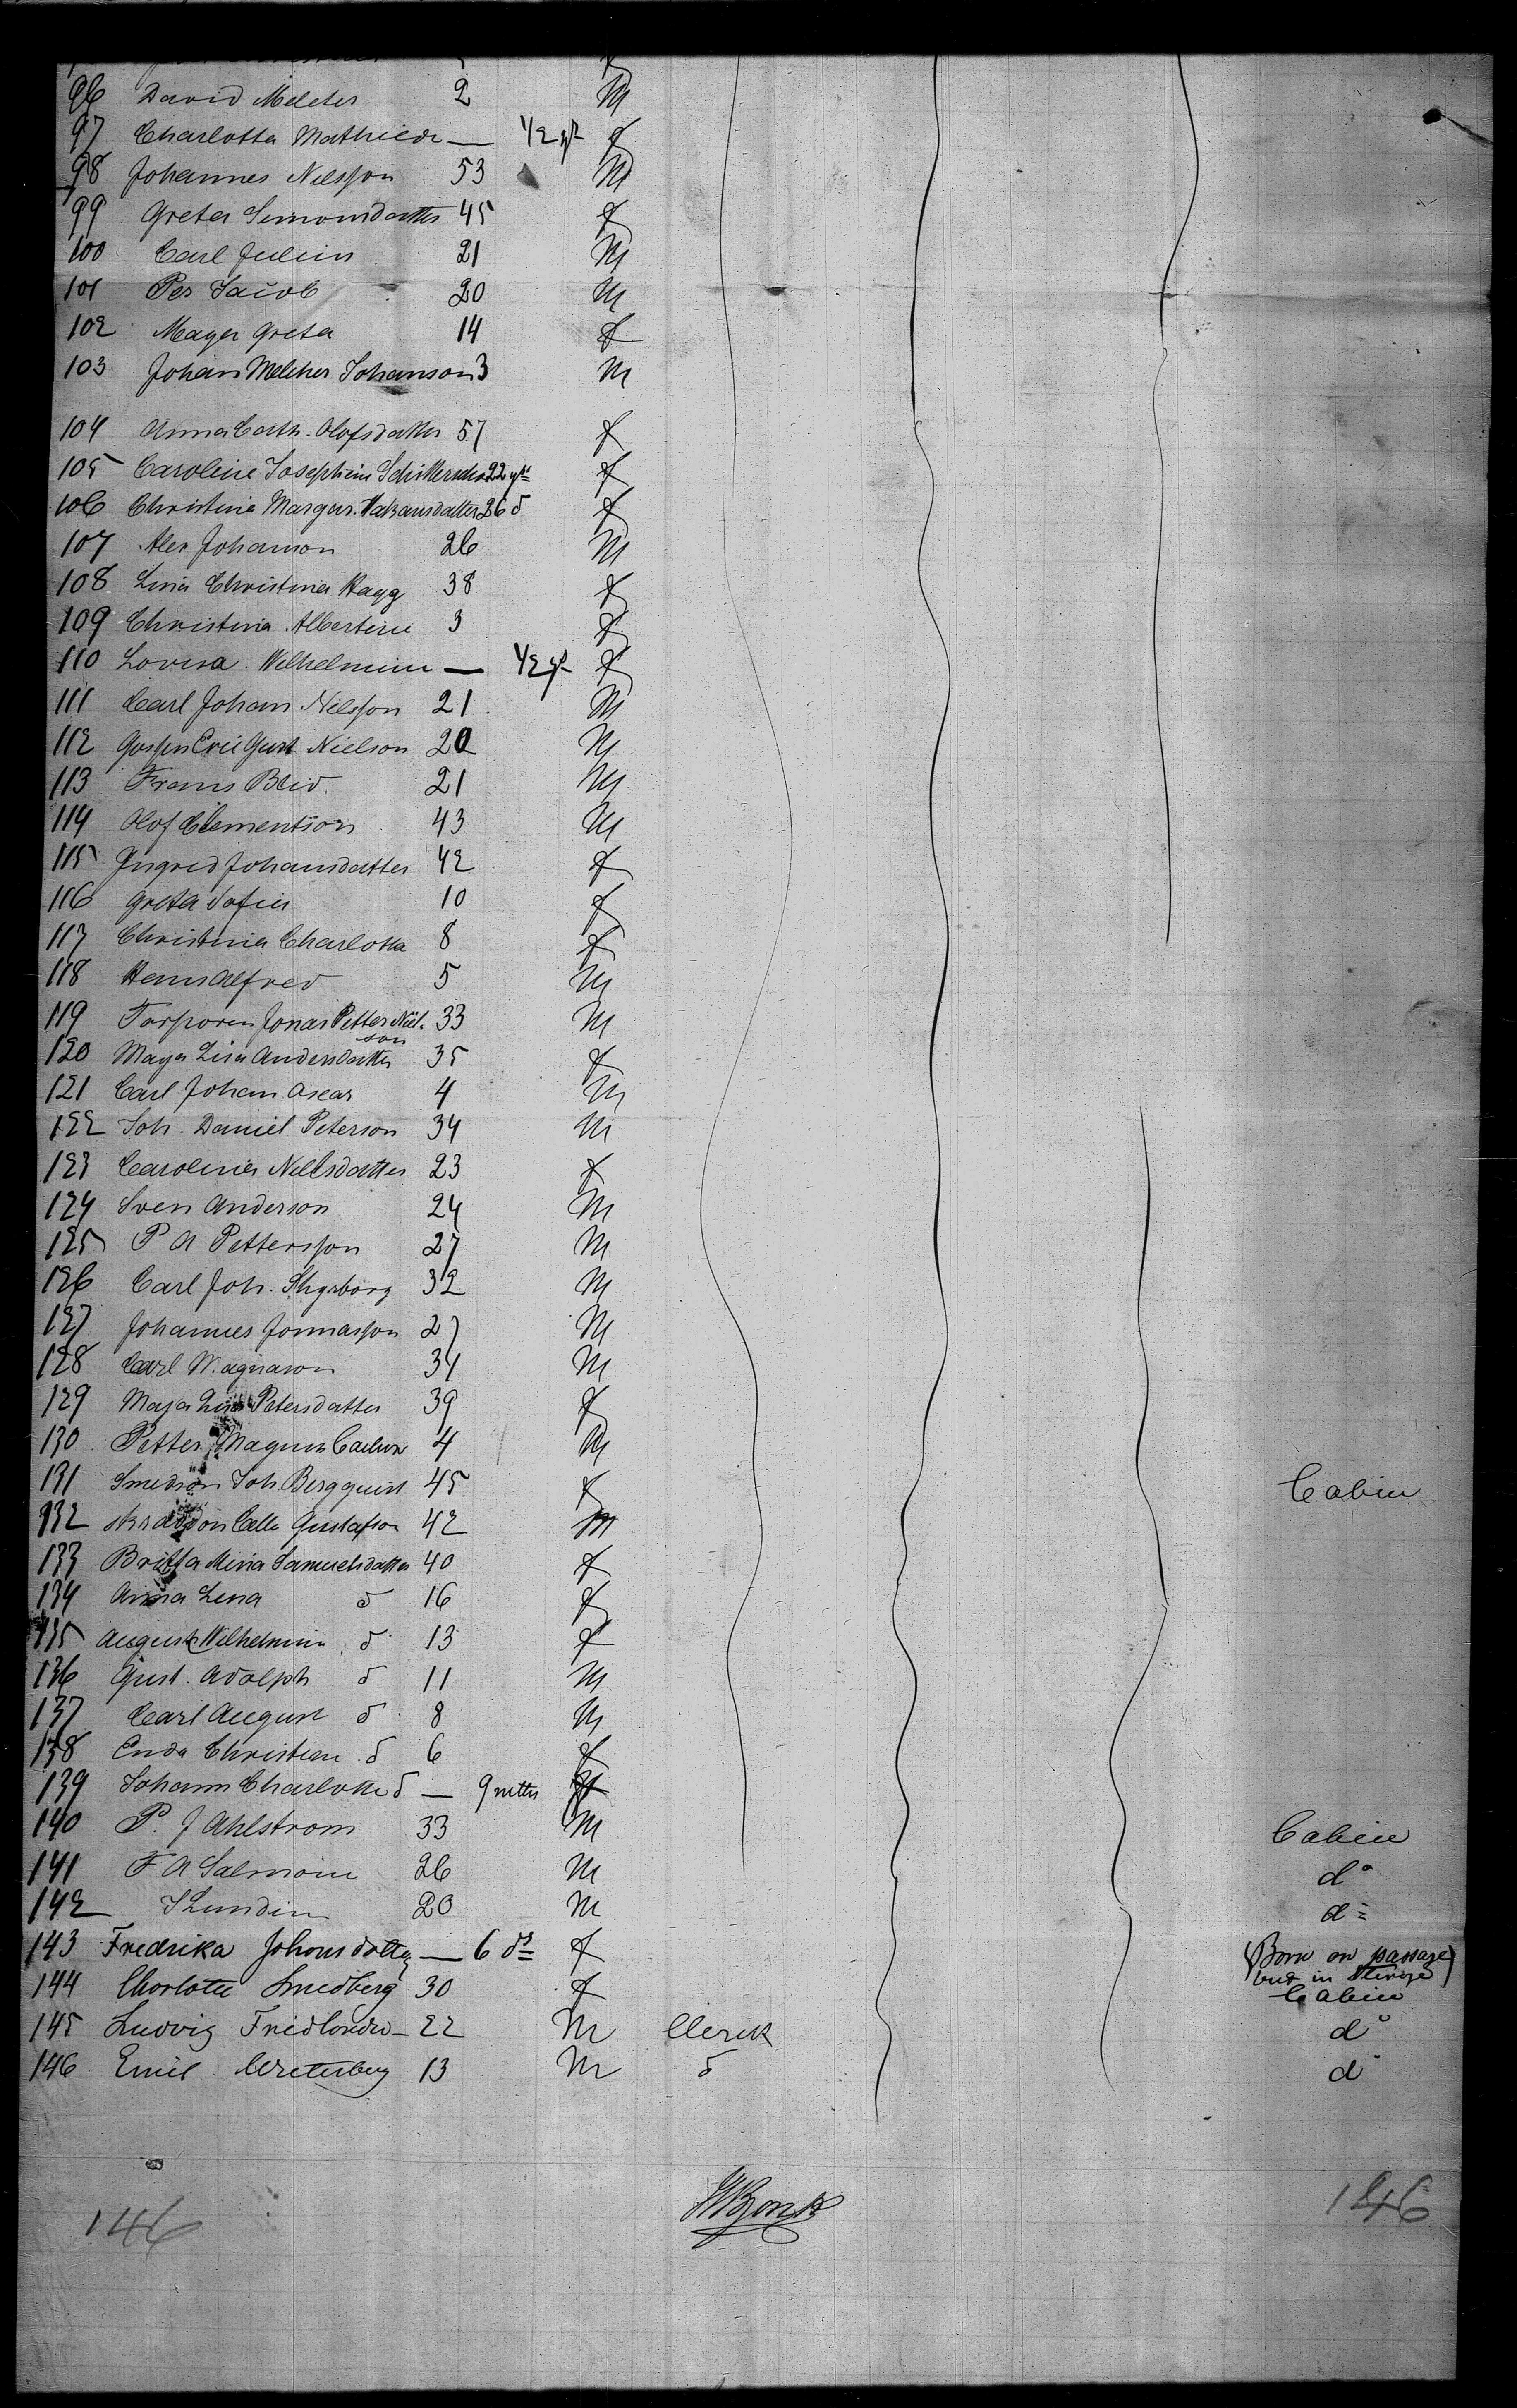 96 David Melcher 2 M
97 Charlotta Mathilda — 1/2 yr f
98 Johannes Nilsson 53 M
99 Greta Simonsdatter 45 f
100 Carl Julius 21 M
101 Per Jacob 20 M
102 Maya Greta 14 f
103 Johan Melcher Johanson 3 M
104 Anna Cath. Olofsdatter 57 f
105 Caroline Josephine 22 yrs f
106 Christina Margar. Hakansdatter 26 d f
107 Alex Johanson 26 M
108 Lina Christina Hagg 38 f
109 Christina Albertine 3 f
110 Lovisa Wilhelmine — 1/2 yr f
111 Carl Johan Nilsson 21 M
112 Eric Gust Nielson 20 M
113 Frans Blid 21 M
114 Olof Clementson 43 M
115 Ingrid Johansdatter 42 f
116 Greta Sofia 10 f
117 Christina Charlotta 8 f
118 Hans Alfred 5 M
119 Jonas Petter Niel- 33 M
son
120 Maya Lisa Andersdatter 35 f
121 Carl Johan Oscar 4 M
122 Joh. Daniel Peterson 34 M
123 Carolina Nillsdatter 23 f
124 Sven Anderson 24 M
125 P A Pettersson 27 M
126 Carl Joh. 32 M
127 Johannes Jonnasson 27 M
128 Carl Magnason 34 M
129 Maja Lisa Petersdatter 39 f
130 Petter Magnus Carlson 4 M
131 Smedson Joh. Bergquist 45 f Cabin
132 Calle Gustafson 42 M
133 Britta Mina Samuelsdatter 40 f
134 Anna Lena d 16 f
135 Augusta Wilhelmina d 13 f
136 Gust. Adolph d 11 M
137 Carl August d 8 M
138 Enda Christian d 6 f
139 Johann Charlotte d — 9 mths f
140 P. J Ahlstrom 33 M Cabin
141 F A Salmoin 26 M do
142 J Lundin 20 M do
143 Fredrika Johonsdotter — 6 ds f (Born on passage
but in Sterage)
144 Chorlotte Smedberg 30 f Cabin
145 Ludvig Fridlondre — 22 M Clerk do
146 Emil 13 M d d
146 146